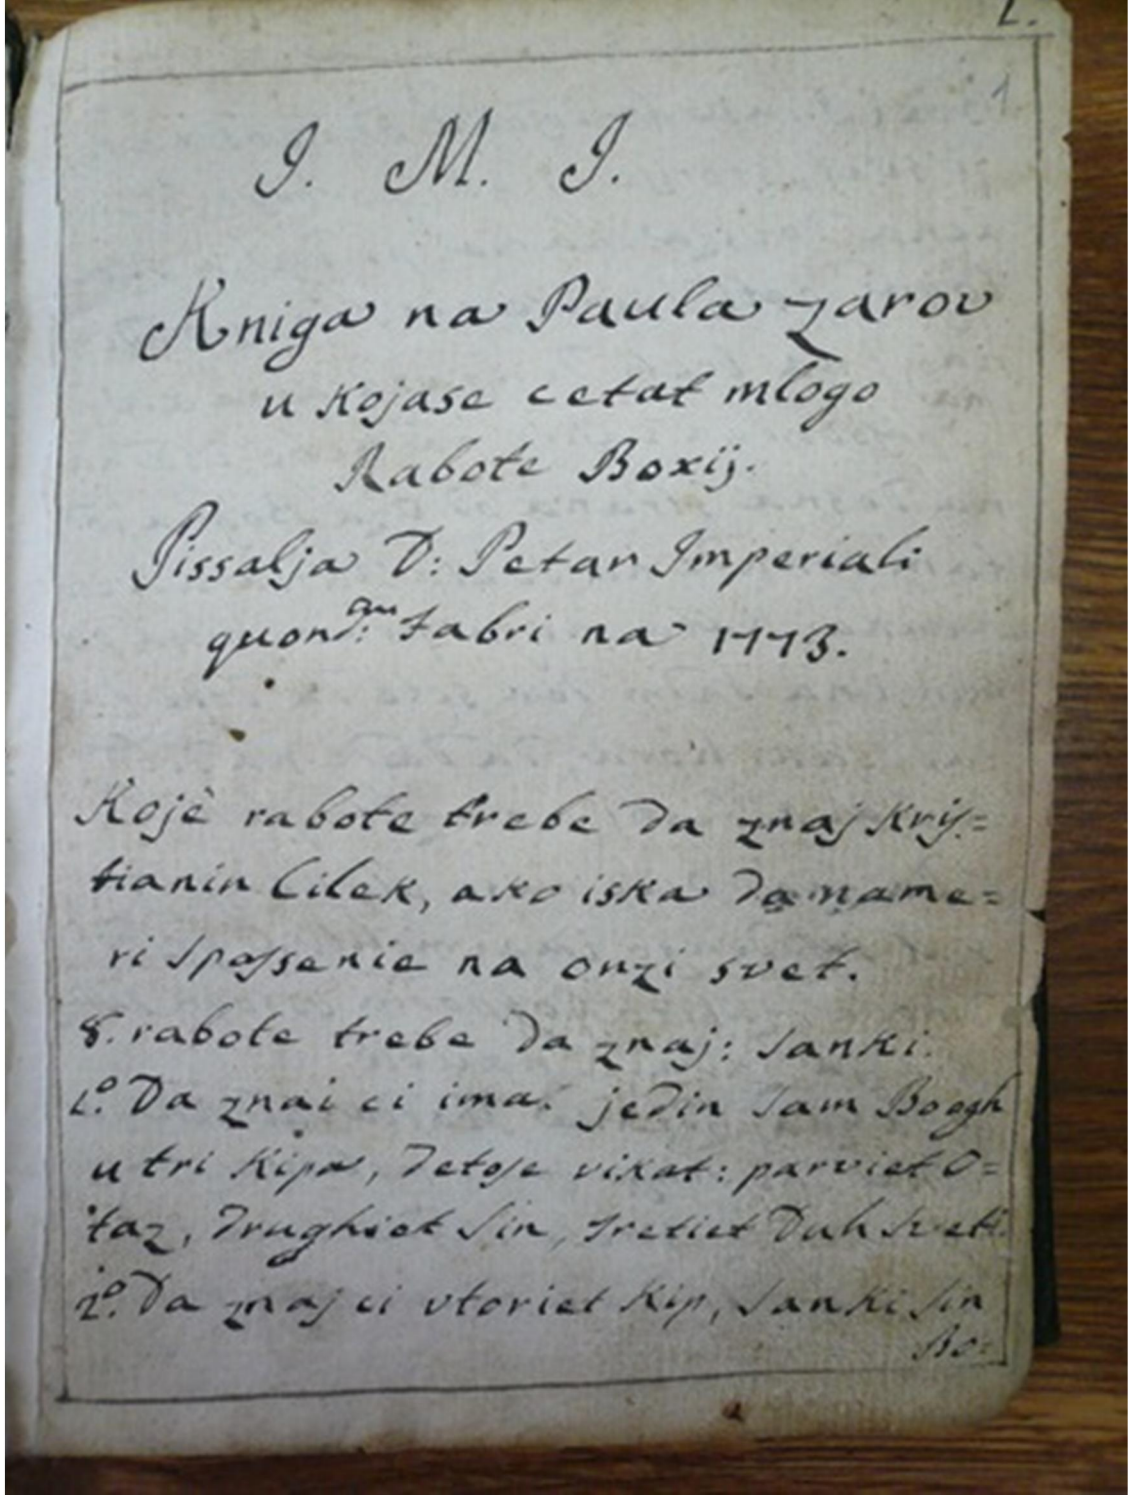 1.
1
J. M. J.
Kniga na Paula zarov
u kojase cetat mlogo
Rabote Boxij.
Pissalja D: Petar Imperiali
quond:am Fabri na 1773.
Kojè rabote trebe da znaj Kris=
tianin Cilek, ako iska da name=
ri Spassenie na onzi svet.
8. rabote trebe da znaj: Sanki.
1º. Da znai ci ima jedin Sam Boogh
u tri Kipa, detose vikat: parviet O=
taz, drughiet Sin, tretiet Duh Sveti.
2º. Da znaj ci vtoriet Kip, Sanki Sin
Bo: